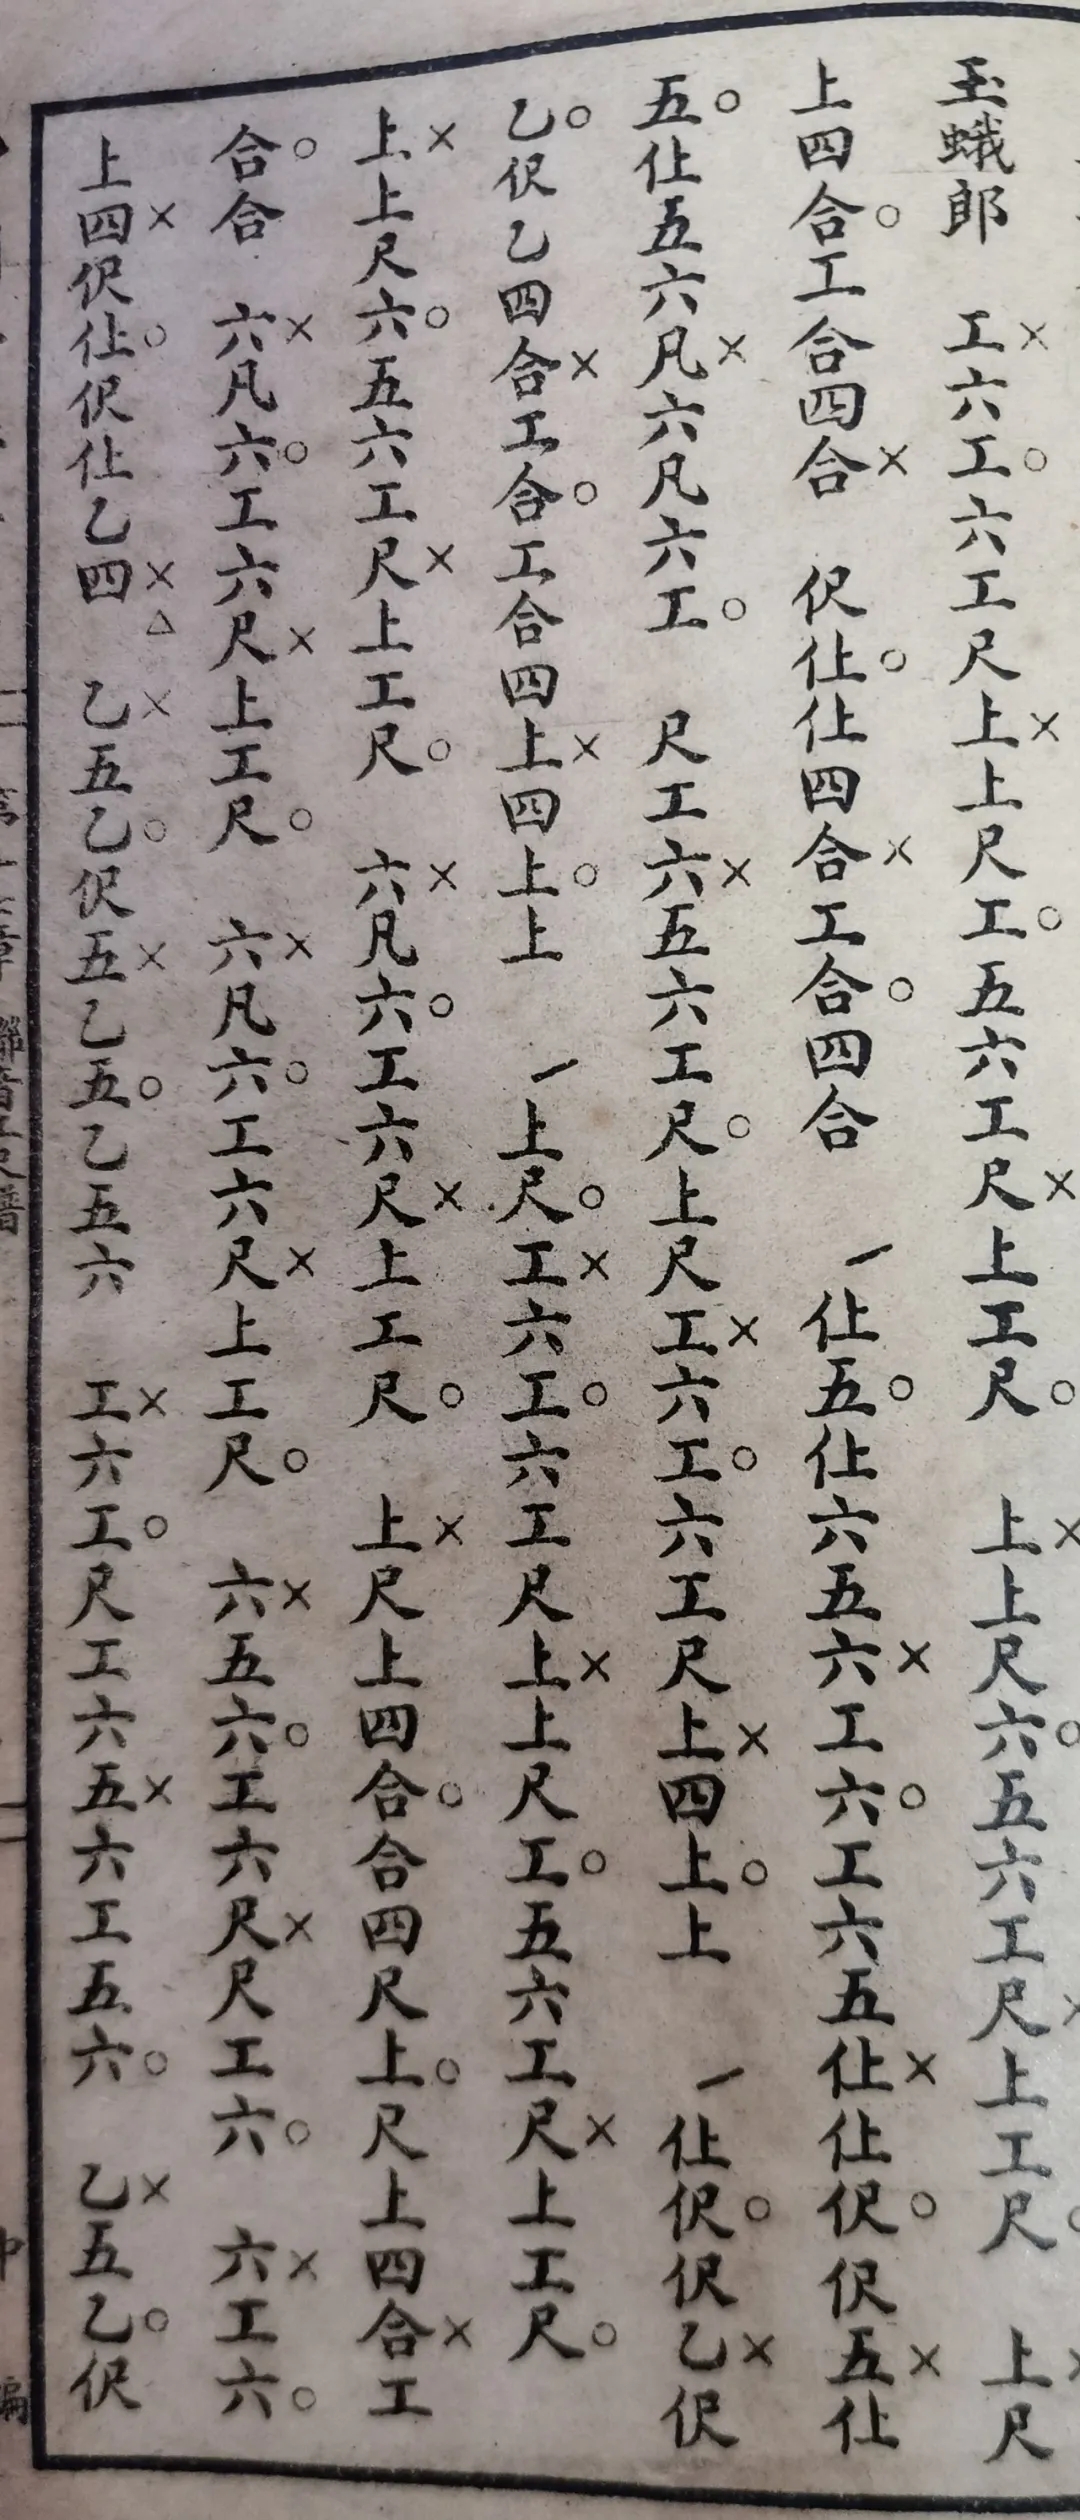 玉蛾郎　工×六工○六工尺上×上尺工○五六工尺×上工尺○　上×上尺六○五六工尺×上工尺○　上×尺
上四合○工合四合×　伬仩○仩四合×工合○四合　㇀仩五○仩六五六×工六○工六五仩×仩伬○伬五×仩
五○仩五六凡×六凡六工○　尺工六×五六工尺○上尺工×六工○六工尺上×四上○上　㇀仩伬○伬乙×伬
乙○伬乙四合×工合○工合四上×四上○上　㇀上尺○工×六工○六工尺上×上尺工○五六工尺×上工尺○
上×上尺六○五六工尺×上工尺○　六×凡六○工六尺×上工尺○　上×尺上四合○合四尺上○尺上四合×工
合○合　六×凡六○工六尺×上工尺○　六×凡六○工六尺×上工尺○　六×五六○工六尺×尺工六○　六×工六○
上四×伬仩○伬仩乙四×△　乙×五乙○伬五×乙五○乙五六　工×六工○尺工六五×六工五六○　乙×五乙○伬